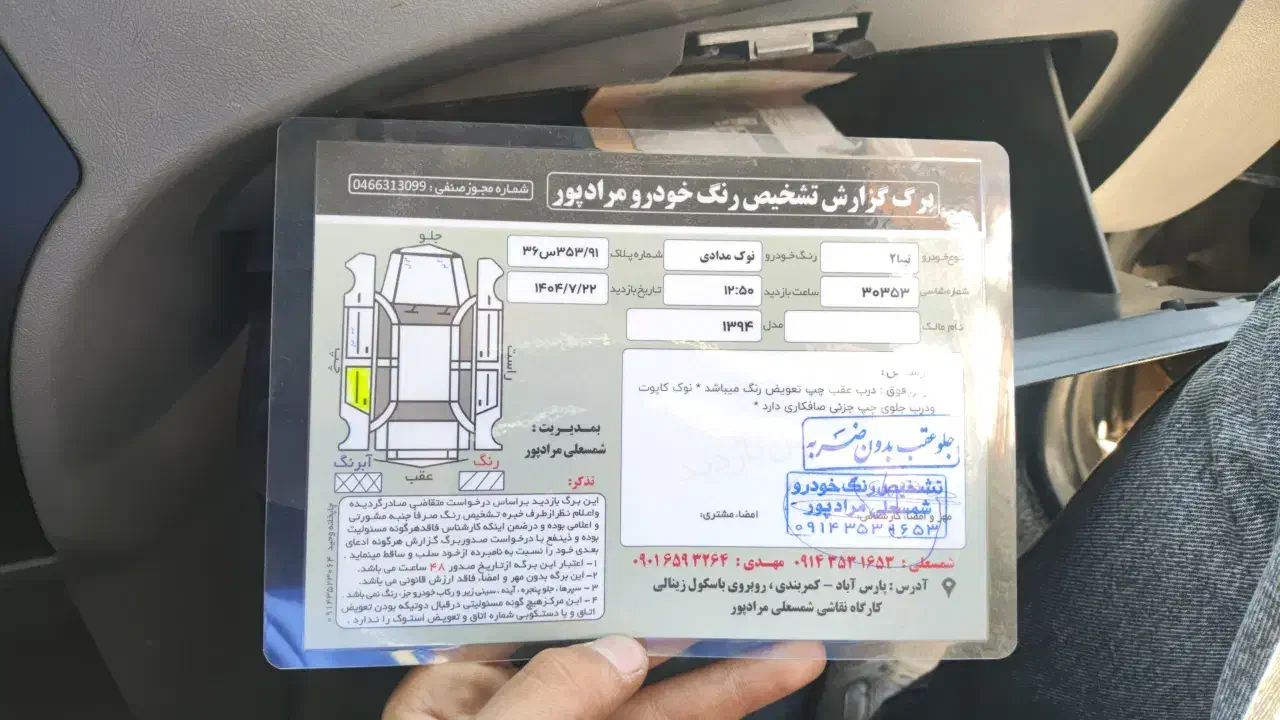 برگ گزارش تشخیص رنگ خودرو مرادپور
شماره مجوز صنفی : 0466313099
نوع خودرو تیبا۲ رنگ خودرو نوک مدادی شماره پلاک ۳۶س۳۵۳/۹۱
شماره شاسی ۳۰۳۵۳ ساعت بازدید ۱۲:۵۰ تاریخ بازدید ۱۴۰۴/۷/۲۲
نام مالک مدل ۱۳۹۴
فوق : درب عقب چپ تعویض رنگ میباشد * نوک کاپوت
ودرب جلوی چپ جزئی صافکاری دارد *
جلو عقب بدون ضربه
تشخیص رنگ خودرو
شمسعلی مرادپور
۰۹۱۴۳۵۳۱۶۵۳
مهر و امضاء کارشناس:
امضاء مشتری:
جلو
چپ
راست
عقب
رنگ
آبرنگ
بمدیریت :
شمسعلی مرادپور
تذکر:
این برگ بازدید براساس درخواست متقاضی صادر گردیده
واعلام نظر ازطرف خبره تشخیص رنگ صرفا جنبه مشورتی
و اعلامی بوده و درضمن اینکه کارشناس فاقد هرگونه مسئولیت
بوده و ذینفع با درخواست صدور برگ گزارش هرگونه ادعای
بعدی خود را نسبت به نامبرده ازخود سلب و ساقط مینماید .
۱- اعتبار این برگه از تاریخ صدور ۴۸ ساعت می باشد.
۲- این برگه بدون مهر و امضاء، فاقد ارزش قانونی می باشد.
۳- سپرها، جلو پنجره، آینه، سینی زیر و رکاب خودرو جز، رنگ نمی باشد .
۴- این مرکز هیچ گونه مسئولیتی در قبال دوتیکه بودن اتاق و تعویض
اتاق و یا دستکوبی شماره اتاق و تعویض استوک را ندارد .
چاپخانه وحید ۰۹۱۴۳۵۲۳۰۶۴
شمسعلی : ۰۹۱۴ ۳۵۳ ۱۶۵۳ مهدی : ۰۹۰۱ ۶۵۹ ۳۲۶۴
آدرس : پارس آباد - کمربندی ، روبروی باسکول زینالی
کارگاه نقاشی شمسعلی مرادپور